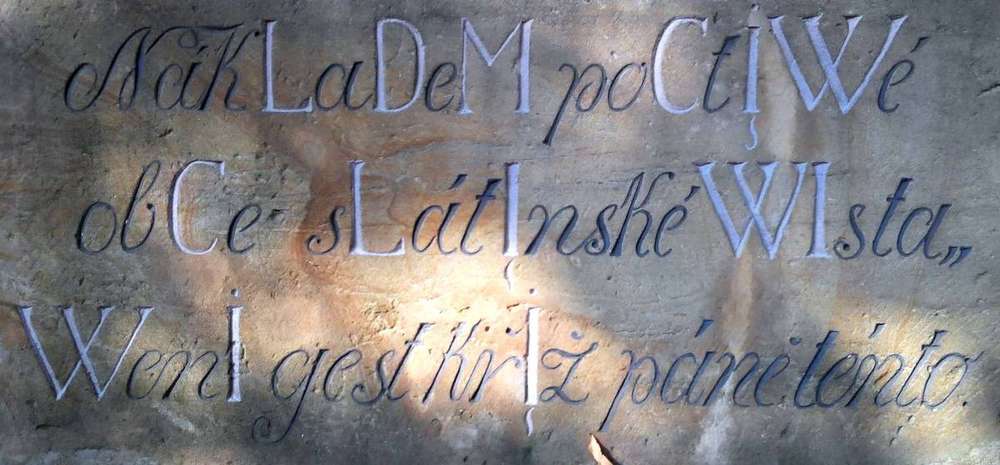 NákLaDeM poCtIWé
obCe sLátInské WIsta„
WenI gest křIž páně tento.